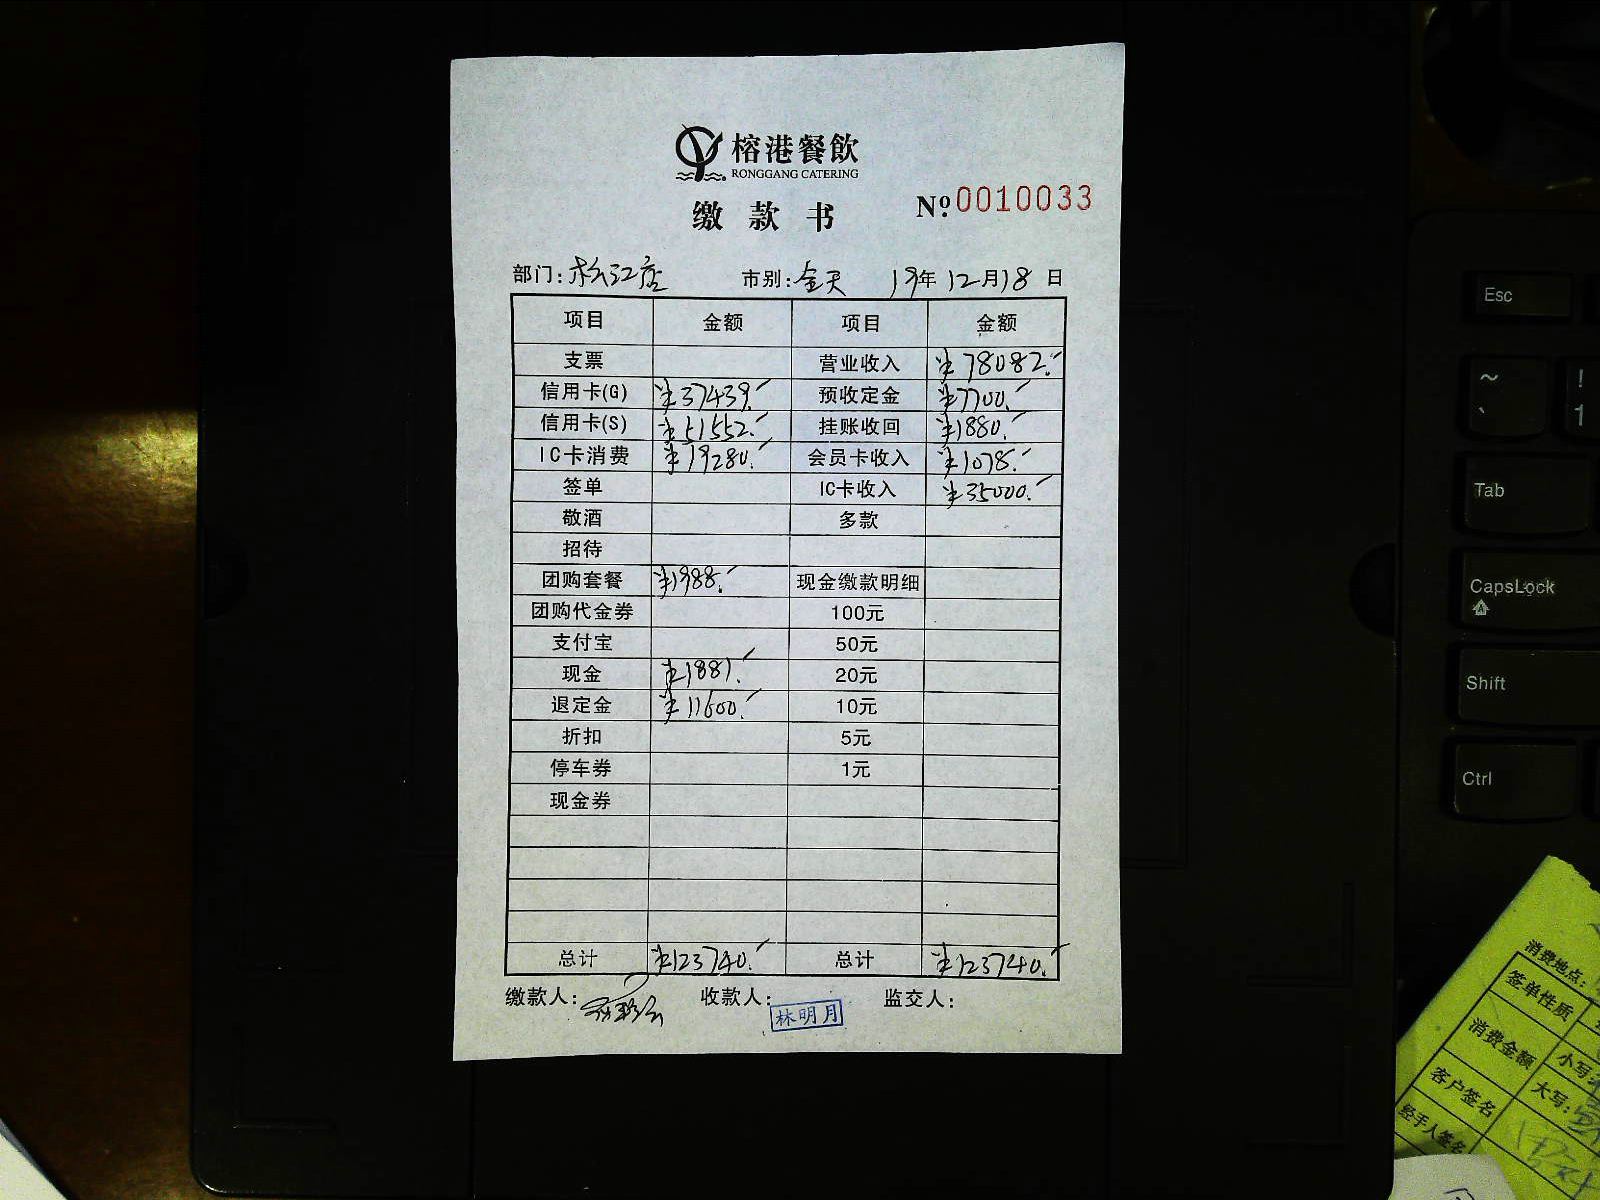 榕港餐飲
RONGGANG CATERING
缴款书 №0010033
部门:松江店 市别:全天 19年12月18日
项目 金额 项目 金额
支票 营业收入 ¥78082.-
信用卡(G) ¥37439.- 预收定金 ¥7700.-
信用卡(S) ¥51552.- 挂账收回 ¥1880.-
IC卡消费 ¥19280.- 会员卡收入 ¥1078.-
签单 IC卡收入 ¥35000.-
敬酒 多款
招待
团购套餐 ¥1988.- 现金缴款明细
团购代金券 100元
支付宝 50元
现金 ¥1881.- 20元
退定金 ¥11600.- 10元
折扣 5元
停车券 1元
现金券
总计 ¥123740.- 总计 ¥123740.-
缴款人: 收款人:林明月 监交人:
Esc
~
`
!
1
Tab
CapsLock
Shift
Ctrl
消费地点:
签单性质
消费金额 小写
大写:
客户签名
经手人签名